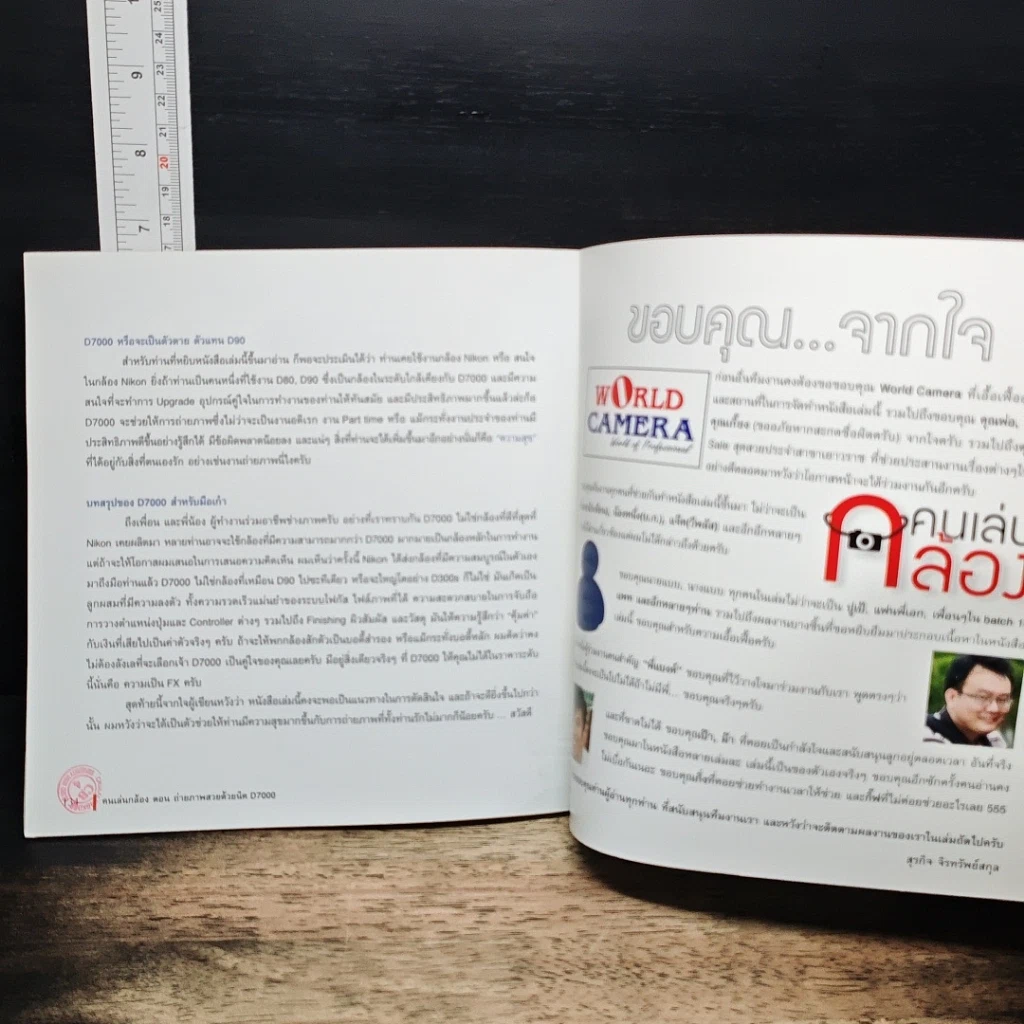 D7000 หรือจะเป็นตัวตาย ตัวแทน D90
สำหรับท่านที่หยิบหนังสือเล่มนี้ขึ้นมาอ่าน ก็พอจะประเมินได้ว่า ท่านเคยใช้งานกล้อง Nikon หรือ สนใจ
ในกล้อง Nikon ยิ่งถ้าท่านเป็นคนหนึ่งที่ใช้งาน D80, D90 ซึ่งเป็นกล้องในระดับใกล้เคียงกับ D7000 และมีความ
สนใจที่จะทำการ Upgrade อุปกรณ์คู่ใจในการทำงานของท่านให้ทันสมัย และมีประสิทธิภาพมากขึ้นแล้วล่ะก็
D7000 จะช่วยให้การถ่ายภาพซึ่งไม่ว่าจะเป็นงานอดิเรก งาน Part time หรือ แม้กระทั่งงานประจำของท่านมี
ประสิทธิภาพดีขึ้นอย่างรู้สึกได้ มีข้อผิดพลาดน้อยลง และแน่ๆ สิ่งที่ท่านจะได้เพิ่มขึ้นมาอีกอย่างนั่นก็คือ "ความสุข"
ที่ได้อยู่กับสิ่งที่ตนเองรัก อย่างเช่นงานถ่ายภาพนี่ไงครับ
บทสรุปของ D7000 สำหรับมือเก๋า
ถึงเพื่อน และพี่น้อง ผู้ทำงานร่วมอาชีพช่างภาพครับ อย่างที่เราทราบกัน D7000 ไม่ใช่กล้องที่ดีที่สุดที่
Nikon เคยผลิตมา หลายท่านอาจจะใช้กล้องที่มีความสามารถมากกว่า D7000 มากมายเป็นกล้องหลักในการทำงาน
แต่ถ้าจะให้โอกาสผมเสนอในการเสนอความคิดเห็น ผมเห็นว่าครั้งนี้ Nikon ได้ส่งกล้องที่มีความสมบูรณ์ในตัวเอง
มาถึงมือท่านแล้ว D7000 ไม่ใช่กล้องที่เหมือน D90 ไปซะทีเดียว หรือจะใหญ่โตอย่าง D300s ก็ไม่ใช่ มันเกิดเป็น
ลูกผสมที่มีความลงตัว ทั้งความรวดเร็วแม่นยำของระบบโฟกัส ไฟล์ภาพที่ได้ ความสะดวกสบายในการจับถือ
การวางตำแหน่งปุ่มและ Controller ต่างๆ รวมไปถึง Finishing ผิวสัมผัส และวัสดุ มันให้ความรู้สึกว่า "คุ้มค่า"
กับเงินที่เสียไปเป็นค่าตัวจริงๆ ครับ ถ้าจะให้พกกล้องสักตัวเป็นบอดี้สำรอง หรือแม้กระทั่งบอดี้หลัก ผมคิดว่าคง
ไม่ต้องลังเลที่จะเลือกเจ้า D7000 เป็นคู่ใจของคุณเลยครับ มีอยู่สิ่งเดียวจริงๆ ที่ D7000 ให้คุณไม่ได้ในราคาระดับ
นี้นั่นคือ ความเป็น FX ครับ
สุดท้ายนี้จากใจผู้เขียนหวังว่า หนังสือเล่มนี้คงจะพอเป็นแนวทางในการตัดสินใจ และถ้าจะดียิ่งขึ้นไปกว่า
นั้น ผมหวังว่าจะได้เป็นตัวช่วยให้ท่านมีความสุขมากขึ้นกับการถ่ายภาพที่ทั้งท่านรักไม่มากก็น้อยครับ ... สวัสดี
คนเล่นกล้อง ตอน ถ่ายภาพสวยด้วยนิค D7000
ขอบคุณ...จากใจ
WORLD
CAMERA
World of Professional
ก่อนอื่นทีมงานคงต้องขอขอบคุณ World Camera ที่เอื้อเฟื้อ
และสถานที่ในการจัดทำหนังสือเล่มนี้ รวมไปถึงขอบคุณ คุณพ่อ,
คุณเกี๊ยง (ขออภัยหากสะกดชื่อผิดครับ) จากใจครับ รวมไปถึง
Sale สุดสวยประจำสาขาเยาวราช ที่ช่วยประสานงานเรื่องต่างๆ
อย่างดีตลอดมาหวังว่าโอกาสหน้าจะได้ร่วมงานกันอีกครับ
ทุกคนที่ช่วยกันทำหนังสือเล่มนี้ขึ้นมา ไม่ว่าจะเป็น
และอีกหลายๆ
คนเล่น
กล้อง
ขอบคุณนายแบบ, นางแบบ ทุกคนในเล่มไม่ว่าจะเป็น ปูเป้, แฟนพี่เอก, เพื่อนๆใน batch
และอีกหลายๆท่าน รวมไปถึงผลงานบางชิ้นที่ขอหยิบยืมมาประกอบเนื้อหาในหนังสือ
เล่มนี้ ขอบคุณสำหรับความเอื้อเฟื้อครับ
ขอบคุณที่ไว้วางใจมาร่วมงานกับเรา พูดตรงๆว่า
เป็นไปไม่ได้ถ้าไม่มีพี่... ขอบคุณจริงๆครับ
และที่ขาดไม่ได้ ขอบคุณป๊า, ม๊า ที่คอยเป็นกำลังใจและสนับสนุนลูกอยู่ตลอดเวลา อันที่จริง
ขอบคุณมาในหนังสือหลายเล่มละ เล่มนี้เป็นของตัวเองจริงๆ ขอบคุณอีกซักครั้งคนอ่านคง
ไม่เบื่อกันเนอะ ขอบคุณกิ๊งที่คอยช่วยทำงานเวลาให้ช่วย และกิ๊ฟที่ไม่ค่อยช่วยอะไรเลย 555
คุณท่านผู้อ่านทุกท่าน ที่สนับสนุนทีมงานเรา และหวังว่าจะติดตามผลงานของเราในเล่มถัดไปครับ
สุรกิจ จิรทรัพย์สกุล